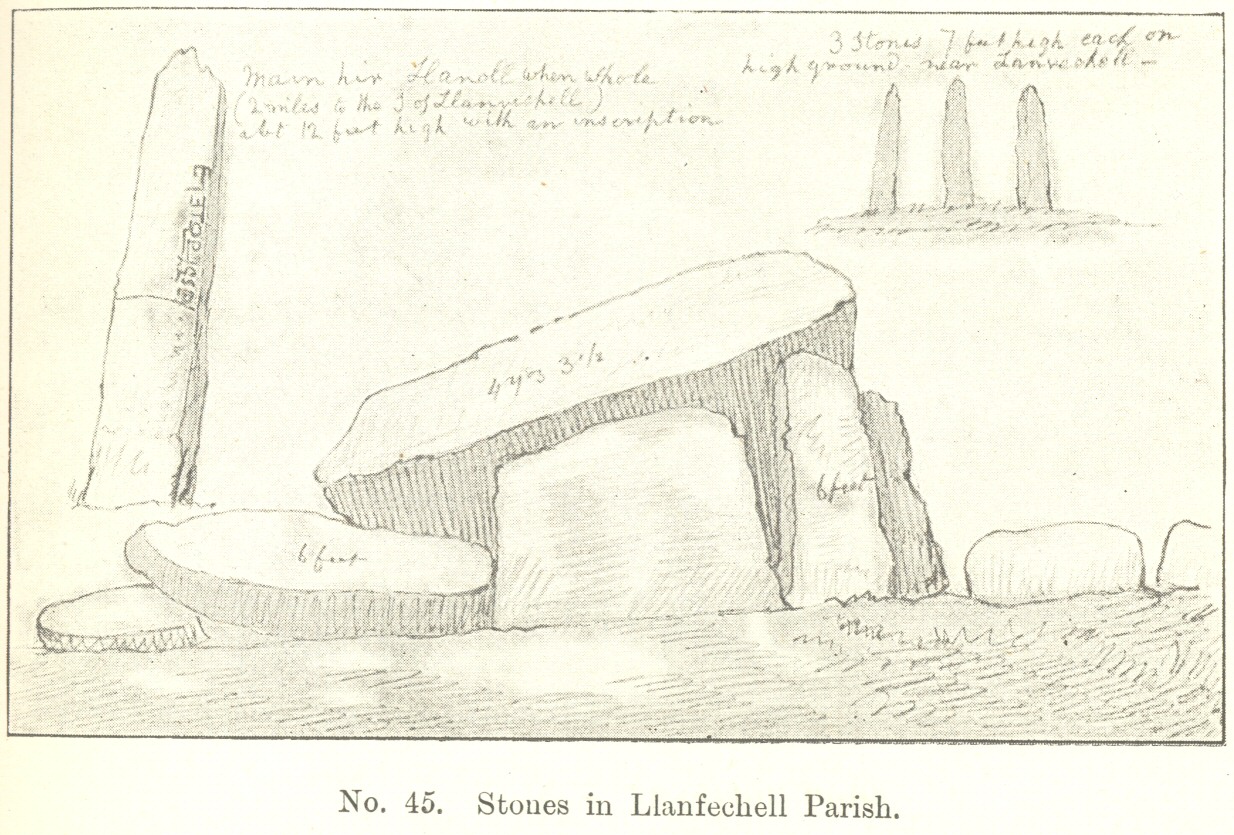 Maen hir Llanoll when whole
(2 miles to the S of Llanvechell)
abt 12 feet high with an inscription
3 Stones 7 feet high each on
high ground near Lanvechell -
4 yds 3 1/2
6 feet
6 feet
No. 45. Stones in Llanfechell Parish.